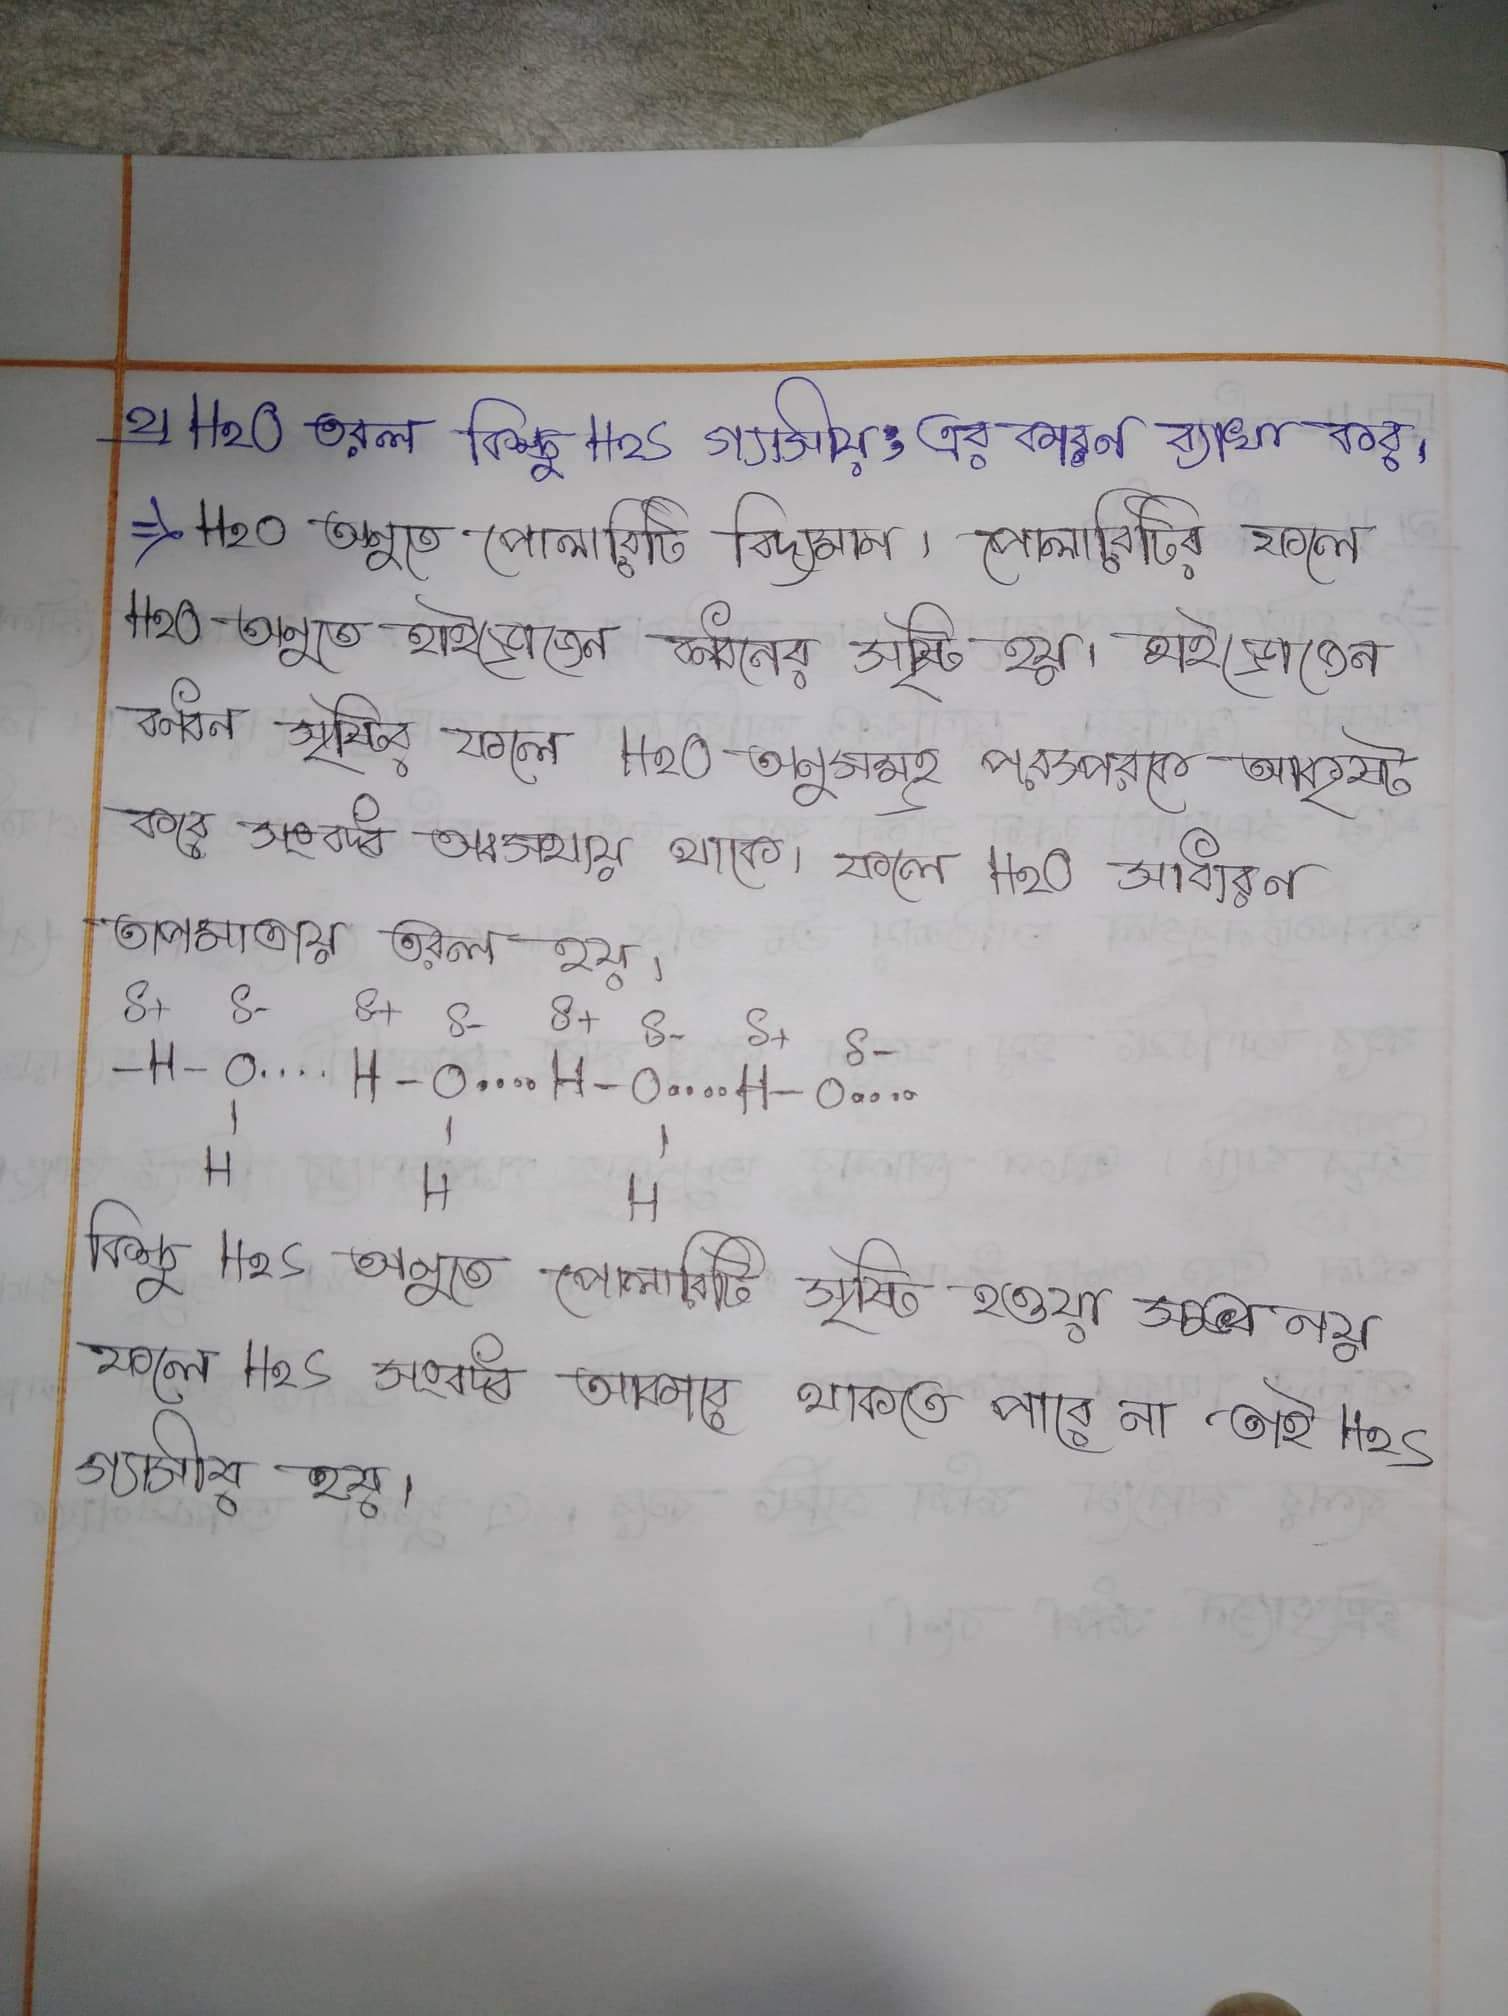 ২। H2O তরল কিন্তু H2S গ্যাসীয়; এর কারন ব্যাখা কর।
⇒ H2O অনুতে পোলারিটি বিদ্যমান। পোলারিটির ফলে
H2O অনুতে হাইড্রোজেন বন্ধনের সৃষ্টি হয়। হাইড্রোজেন
বন্ধন সৃষ্টির ফলে H2O অনুসমূহ পরস্পরকে আকৃষ্ট
করে সংবদ্ধ অবস্থায় থাকে। ফলে H2O সাধারন
তাপমাত্রায় তরল হয়।
δ+ δ- δ+ δ- δ+ δ- δ+ δ-
-H-O....H-O....H-O.....H-O....
| | |
H H H
কিন্তু H2S অনুতে পোলারিটি সৃষ্টি হওয়া সম্ভব নয়
ফলে H2S সংবদ্ধ আকারে থাকতে পারে না তাই H2S
গ্যাসীয় হয়।